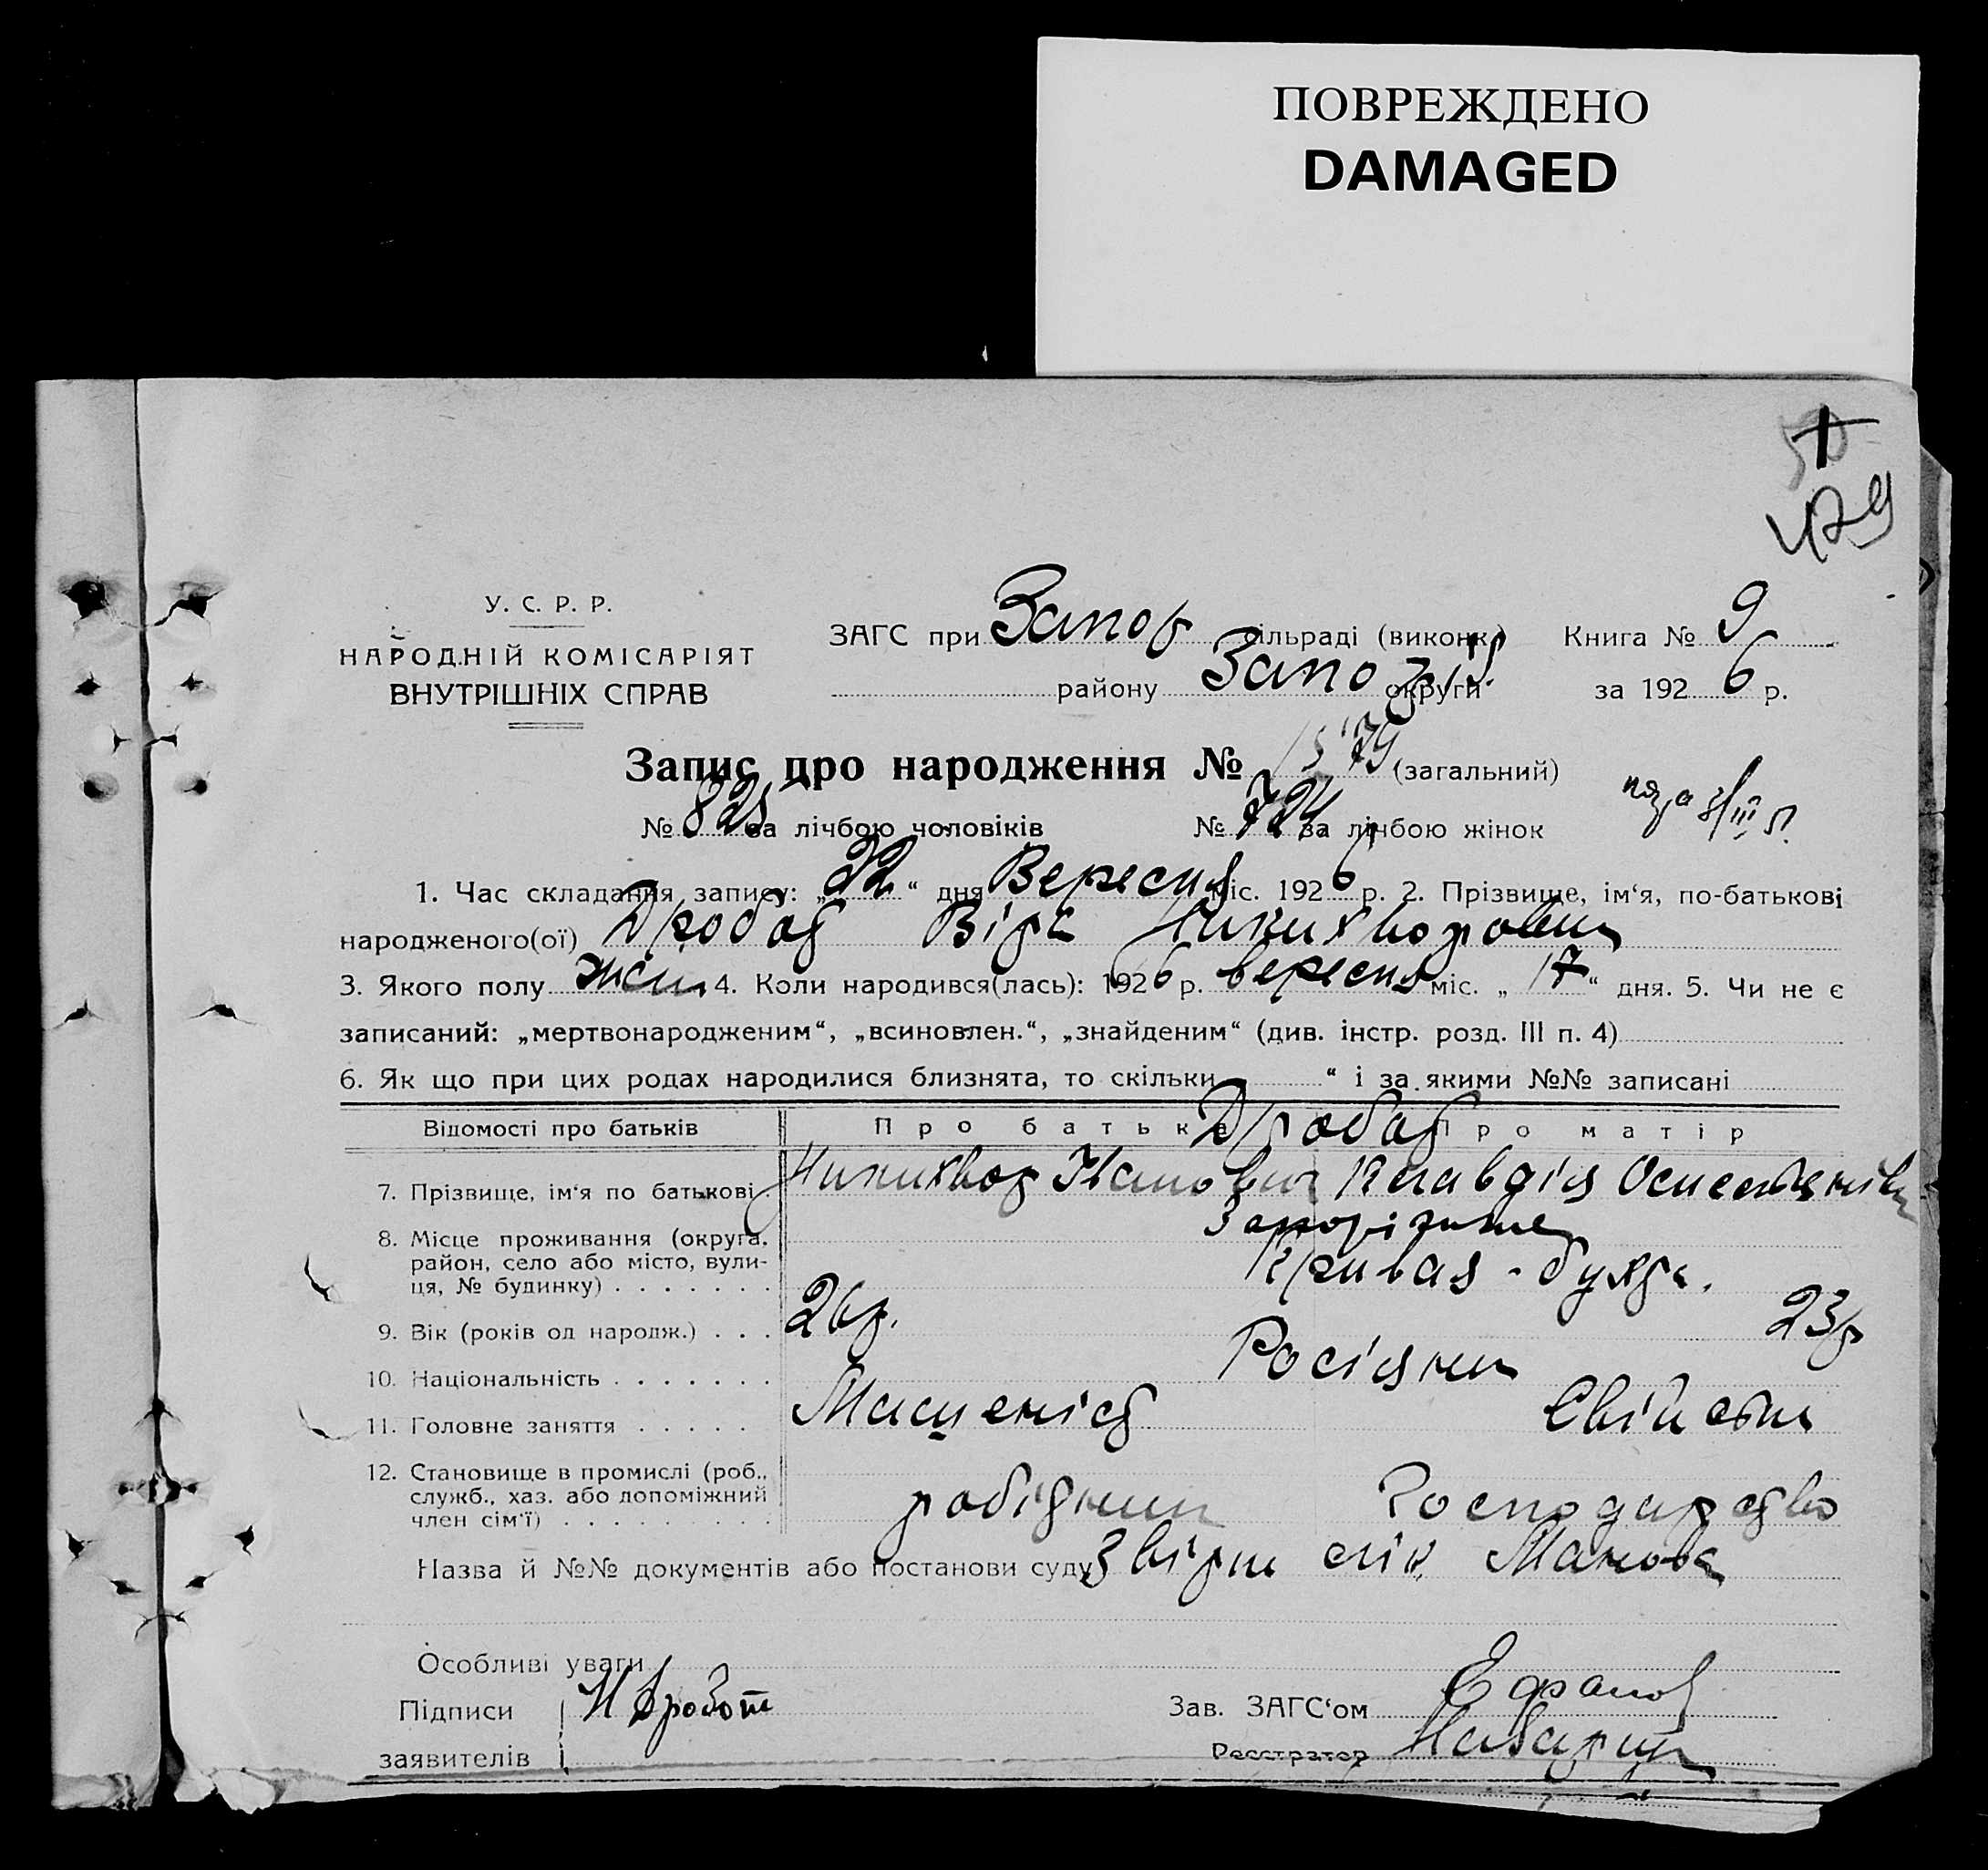 ПОВРЕЖДЕНО
DAMAGED
479
У. С. Р. Р.
НАРОДНІЙ КОМІСАРІЯТ
ВНУТРІШНІХ СПРАВ
ЗАГС при Запор сільраді (виконк.) Книга № 9
району Запоріз округи за 1926 р.
Запис про народження № 1579 (загальний)
№ 825 за лічбою чоловіків № 724 за лічбою жінок
1. Час складання запису: „22“ дня Вересня міс. 1926 р. 2. Прізвище, ім‘я, по-батькові
народженого(ої) Дробот Віра Никихворовна
3. Якого полу жін 4. Коли народився(лась): 1926 р. вересня міс. „17“ дня. 5. Чи не є
записаний: „мертвонародженим“, „всиновлен.“, „знайденим“ (див. інстр. розд. III п. 4)
6. Як що при цих родах народилися близнята, то скільки “ і за якими №№ записані
Відомості про батьків Про батька Про матір
Дробот
7. Прізвище, ім‘я по батькові Никихвор Іванович Клавдія
8. Місце проживання (округа, Запоріжже
район, село або місто, вули- Кривая-бухта.
ця, № будинку)
9. Вік (років од народж.) 26р. 23р
10. Національність Росіяни
11. Головне заняття Машеніст Свійсти
12. Становище в промислі (роб., робідник Господарство
служб., хаз. або допоміжний
член сім‘ї)
Назва й №№ документів або постанови суду Звірки лік Манова
Особливі уваги
Підписи Н Дробот Зав. ЗАГС‘ом
заявителів Реєстратор